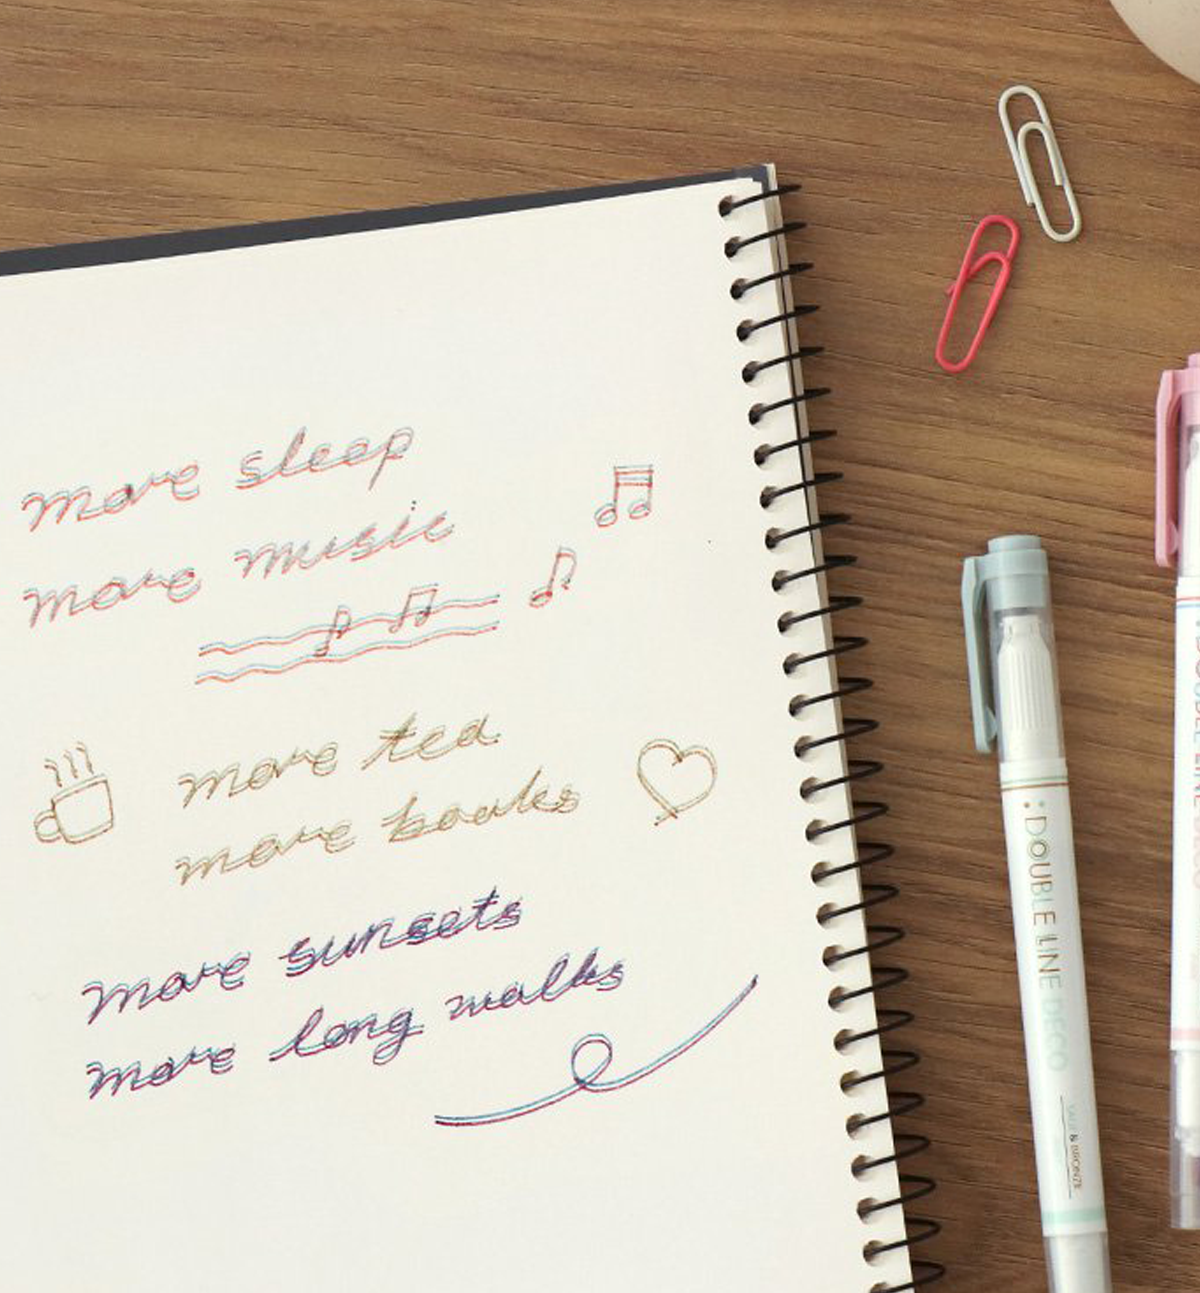 more sleep
more music
more tea
more books
more sunsets
more long walks
DOUBLE LINE DECO
& BRONZE
DOUBLE LINE DECO